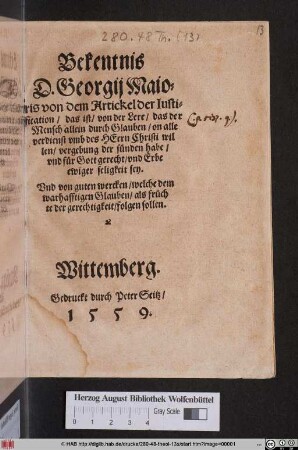 280.48 Th. (13)
13
Bekentnis
D. Georgij Maio-
ris von dem Artickel der Iusti-
fication / das ist / von der Lere / das der
Mensch allein durch Glauben / on alle
verdienst vmb des HErrn Christi wil
len / vergebung der sünden habe /
vnd für Gott gerecht / vnd Erbe
ewiger seligkeit sey.
Vnd von guten wercken / welche dem
warhafftigen Glauben / als früch
te der gerechtigkeit / folgen sollen.
Wittemberg.
Gedruckt durch Peter Seitz /
1559.
Herzog August Bibliothek Wolfenbüttel
0 1 2 3 4
Gray Scale
© HAB http://diglib.hab.de/drucke/280-48-theol-13s/start.htm?image=00001